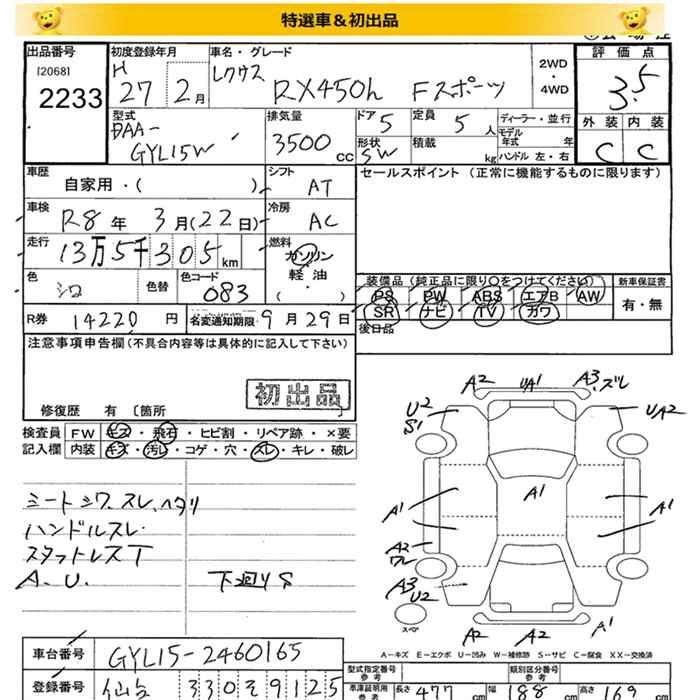 特選車＆初出品
出品番号 初度登録年月 車名・グレード
[2068]
2233
H 27 2月
レクサス RX450h Fスポーツ
2WD・4WD
評価点
3.5
外装 内装
C C
型式 DAA-GYL15W
排気量 3500 cc
ドア 5 定員 5人
形状 SW 積載 kg
ディーラー・並行
モデル年式 年
ハンドル 左・右
車歴 自家用・( )
シフト AT
セールスポイント (正常に機能するものに限ります)
車検 R8年 3月(22日)
冷房 AC
走行 13万5千305 km
燃料 ガソリン 軽油 ( ・ )
色 シロ 色替 色コード 083
装備品 (純正品に限り○をつけてください) 新車保証書
PS PW ABS エアB AW 有・無
SR ナビ TV カワ
R券 14220 円 名変通知期限 9月29日
後日品
注意事項申告欄 (不具合内容等は具体的に記入して下さい)
初出品
修復歴 有 〔箇所 〕
検査員 FW キズ・飛石・ヒビ割・リペア跡・×要
記入欄 内装 キズ・汚レ・コゲ・穴・スレ・キレ・破レ
シートシワ、スレ、ヘタリ
ハンドルスレ
スタットレスT
A.U. 下廻りS
A2 UA1 A3.ズレ
U2 S1 UA2
A1
A1 A1
A2 ワレ
A3 U2
スペア
A2 A2 A1
A－キズ E－エクボ U－凹み W－補修跡 S－サビ C－腐食 XX－交換済
車台番号 GYL15-2460165
型式指定番号 参考 類別区分番号 参考
登録番号 仙台 330そ9125
車庫証明用 参考 長さ 477 cm 幅 188 cm 高さ 169 cm